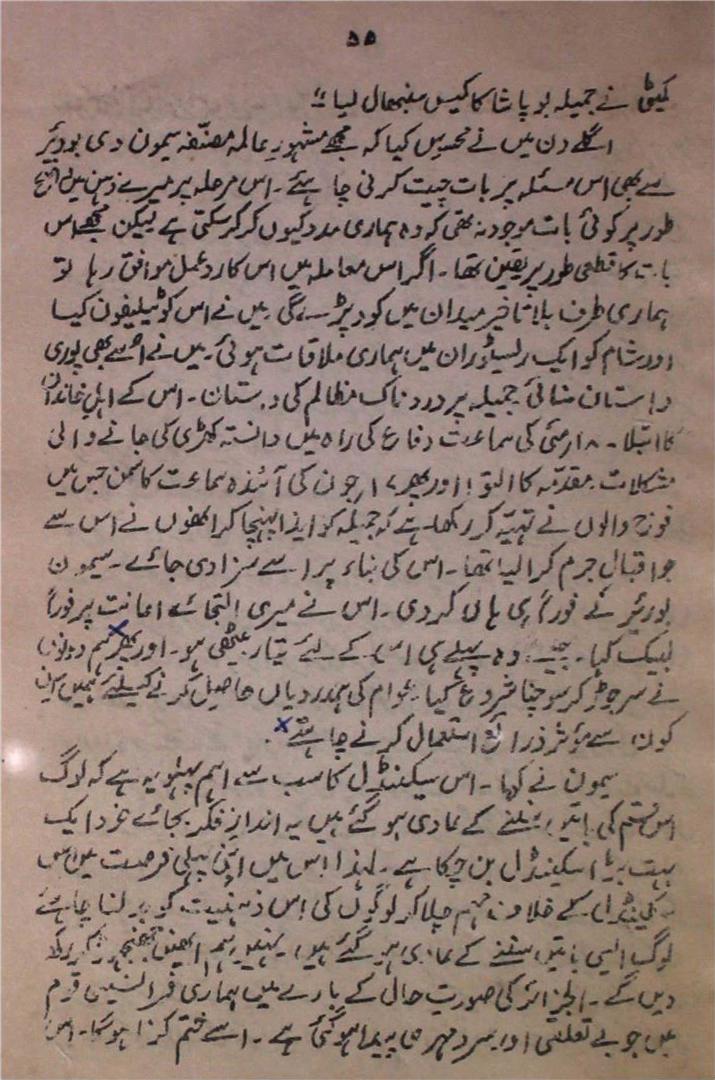 ۵۵
کمیٹی نے جمیلہ بوپاشا کا کیس سنبھال لیا ؛؛
اگلے دن میں نے محسوس کیا کہ مجھے مشہور عالم مصنّفہ سیمون دی بودیئر
سے بھی اس مسئلہ پر بات چیت کرنی چاہئے ۔ اس مرحلہ پر میرے ذہن میں واضح
طور پر کوئی بات موجود نہ تھی کہ وہ ہماری مدد کیوں کر کر سکتی ہے لیکن مجھے اس
بات کا قطعی طور پر یقین تھا ۔ اگر اس معاملہ میں اس کا ردِ عمل موافق رہا تو
ہماری طرف بلا تاخیر میدان میں کود پڑے گی ۔ میں نے اس کو ٹیلیفون کیا
اور شام کو ایک ریسٹوران میں ہماری ملاقات ہوئی ۔ میں نے اُسے بھی پوری
داستان سنائی جمیلہ پر دردناک مظالم کی داستان ۔ اس کے اہلِ خاندان
کا ابتلا ۔ ۱۸ مئی کی سماعت دفاع کی راہ میں دانستہ کھڑی کی جانے والی
مشکلات ، مقدّمہ کا التوا اور پھر ۱۷ جون کی آئندہ سماعت کا سمن جس میں
فوج والوں نے تہیّہ کر رکھا ہے کہ جمیلہ کو ایذا پہنچا کر انھوں نے اس سے
جو اقبالِ جرم کرا لیا تھا ۔ اس کی بناء پر اسے سزا دی جائے ۔ سیمون
بورئیر نے فوراً ہی ہاں کر دی ۔ اس نے میری التجائے اعانت پر فوراً
لبیک کہا ۔ جیسے وہ پہلے ہی اس کے لئے تیار بیٹھی ہو ۔ اور پھر ہم دونوں
نے سر جوڑ کر سوچنا شروع کیا ۔ عوام کی ہمدردیاں حاصل کرنے کیلئے ہمیں
کون سے مؤثر ذرائع استعمال کرنے چاہئے ۔
سیمون نے کہا ۔ اس سیکنڈل کا سب سے اہم پہلو یہ ہے کہ لوگ
اس قسم کی باتیں سننے کے عادی ہو گئے ہیں یہ اندازِ فکر بجائے خود ایک
بہت بڑا سکینڈل بن چکا ہے ۔ لہٰذا اس میں اپنی پہلی فرصت میں اس
سکینڈل کے خلاف مہم چلا کر لوگوں کی اس ذہنیت کو بدلنا چاہئے
لوگ ایسی باتیں سننے کے عادی ہو گئے ہیں ۔ ہم انھیں جھنجھوڑ کر رکھ
دیں گے ۔ الجزائر کی صورتِ حال کے بارے میں ہماری فرانسیسی قوم
میں جو بے تعلقی اور سرد مہری پیدا ہو گئی ہے ۔ اسے ختم کرنا ہوگا ۔ اس